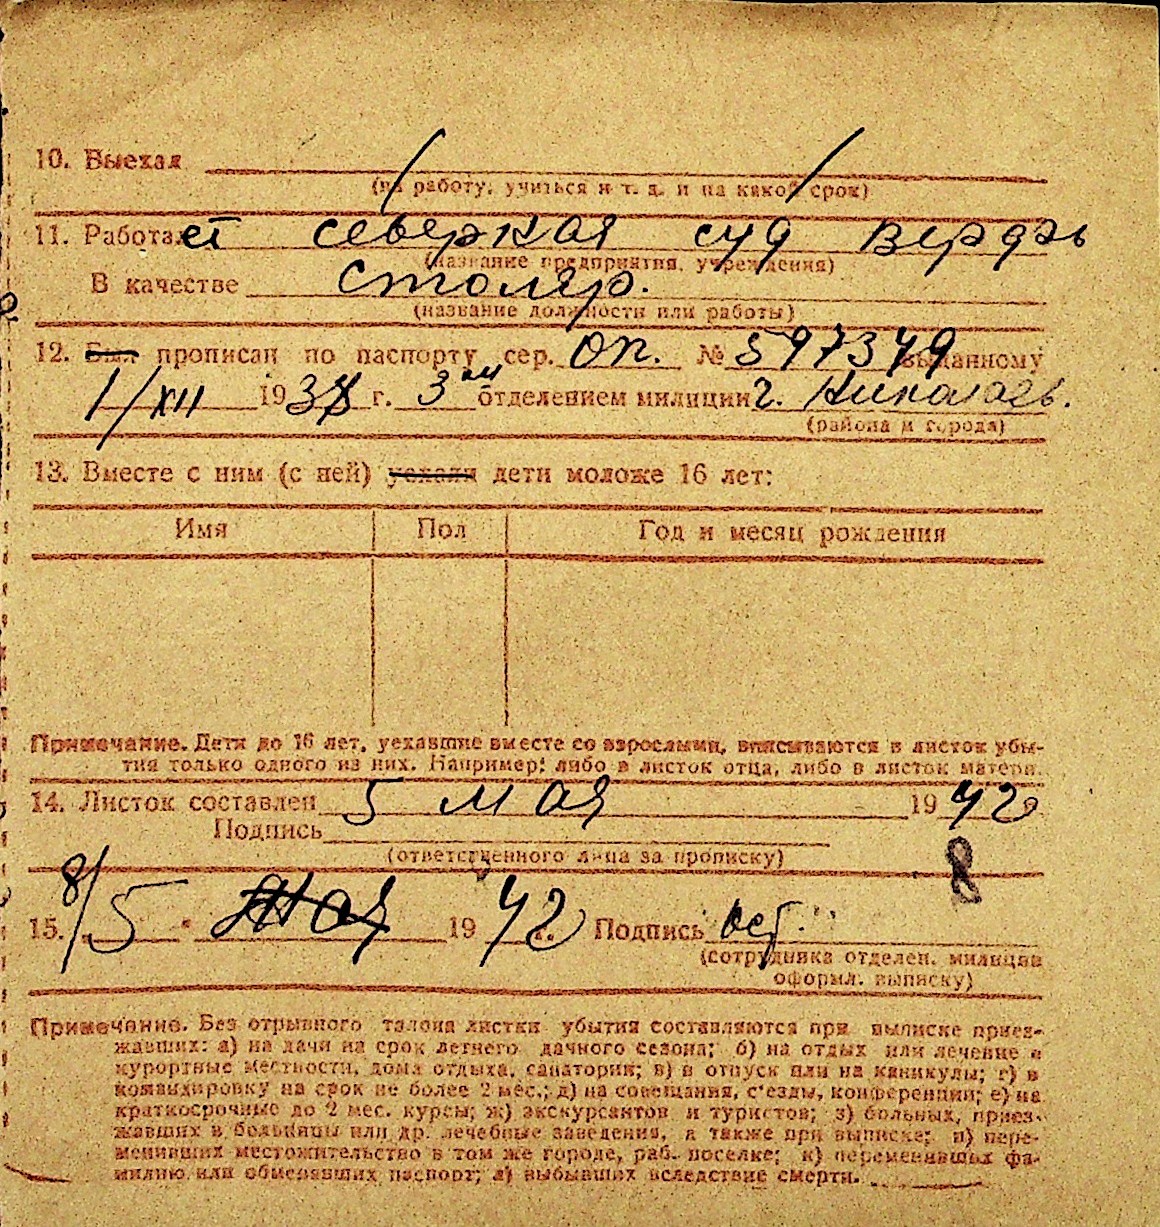 10. Выехал
(на работу, учиться и т. д. и на какой срок)
11. Работает северная суд верфь
(название предприятия, учреждения)
В качестве столяр.
(название должности или работы)
12. Был прописан по паспорту сер. ОП. № 597349 выданному
1/XII 1938 г. 3 им отделением милиции г. Николаевь.
(района и города)
13. Вместе с ним (с ней) уехали дети моложе 16 лет:
Имя Пол Год и месяц рождения
Примечание. Дети до 16 лет, уехавшие вместе со взрослыми, вписываются в листок убы-
тия только одного из них. Например: либо в листок отца, либо в листок матери.
14. Листок составлен 5 мая 1942
Подпись
(ответственного лица за прописку)
8
15. 8/5 " мая 1942 г. Подпись
(сотрудника отделен. милиции
оформл. выписку)
Примечание. Без отрывного талона листки убытия составляются при выписке приез-
жавших: а) на дачи на срок летнего дачного сезона; б) на отдых или лечение в
курортные местности, дома отдыха, санатории; в) в отпуск или на каникулы; г) в
командировку на срок не более 2 мес.; д) на совещания, с'езды, конференции; е) на
краткосрочные до 2 мес. курсы; ж) экскурсантов и туристов; з) больных, приез-
жавших в больницы или др. лечебные заведения, а также при выписке; и) пере-
менивших местожительство в том же городе, раб. поселке; к) переменивших фа-
милию или обменявших паспорт; л) выбывших вследствие смерти.